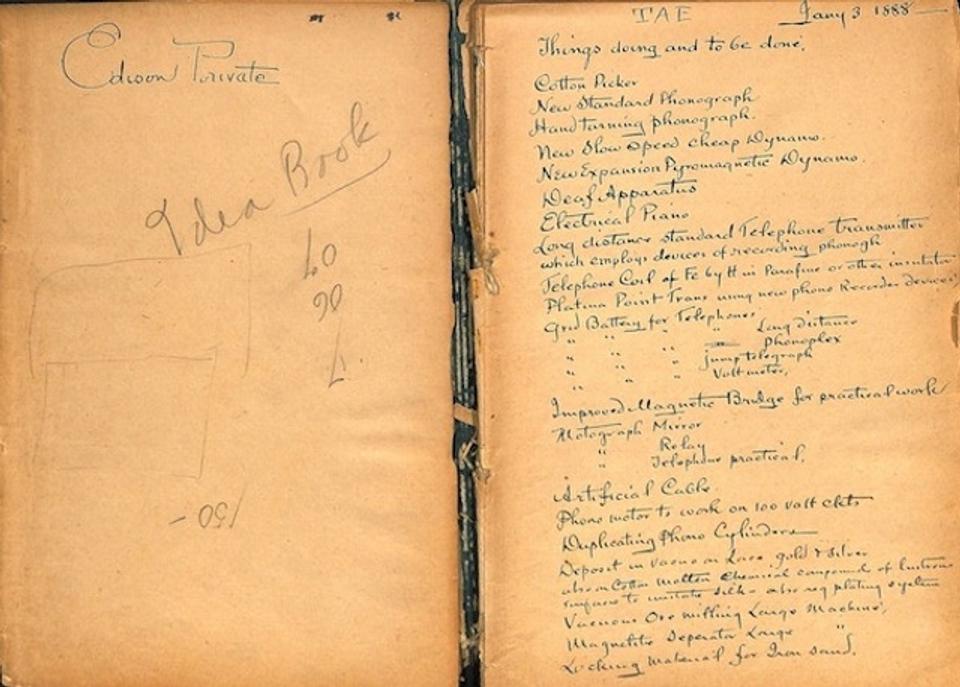 Edison Private
Idea Book
TAE Jany 3 1888
Things doing and to be done.
Cotton Picker
New Standard Phonograph
Hand turning phonograph.
New Slow speed cheap Dynamo.
New Expansion Pyromagnetic Dynamo.
Deaf Apparatus
Electrical Piano
Long distance standard Telephone Transmitter
which employs devices of recording phonogh
Telephone Coil of Fe by H in Parafine or other insulator
Platina Point Trans using new phono Recorder devices
Grid Battery for Telephones.
" " " Long distance
" " " Phonoplex
" " " jump telegraph
" " " Voltmeter,
Improved Magnetic Bridge for practical work
Motograph Mirror
" Relay
" Telephone practical,
Artificial Cable
Phono motor to work on 100 volt ckts
Duplicating Phono Cylinders
Deposit in vacuo on Lace, gold & silver
also on Cotton molten chemical compound of lustrous
surfaces to imitate silk - also reg plating system
Vacuous Ore milling Large Machine,
Magnetite Seperator Large "
Locking material for Iron sand,